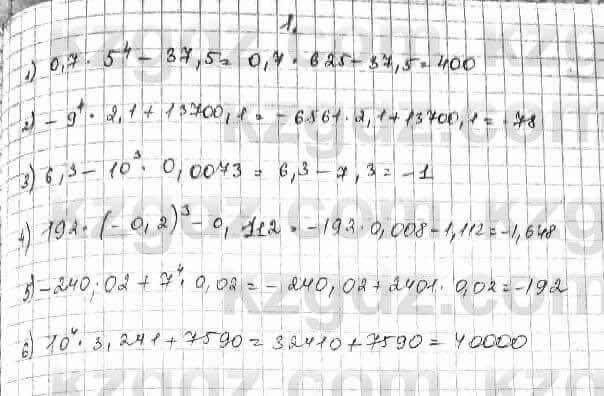 1.
1) 0,7 · 5⁴ - 37,5 = 0,7 · 625 - 37,5 = 400
2) - 9⁴ · 2,1 + 13700,1 = - 6561 · 2,1 + 13700,1 = -78
3) 6,3 - 10³ · 0,0073 = 6,3 - 7,3 = -1
4) 192 · (-0,2)³ - 0,112 = -192 · 0,008 - 1,112 = -1,648
5) -240,02 + 7⁴ · 0,02 = - 240,02 + 2401 · 0,02 = -192
6) 10⁴ · 3,241 + 7590 = 32410 + 7590 = 40000